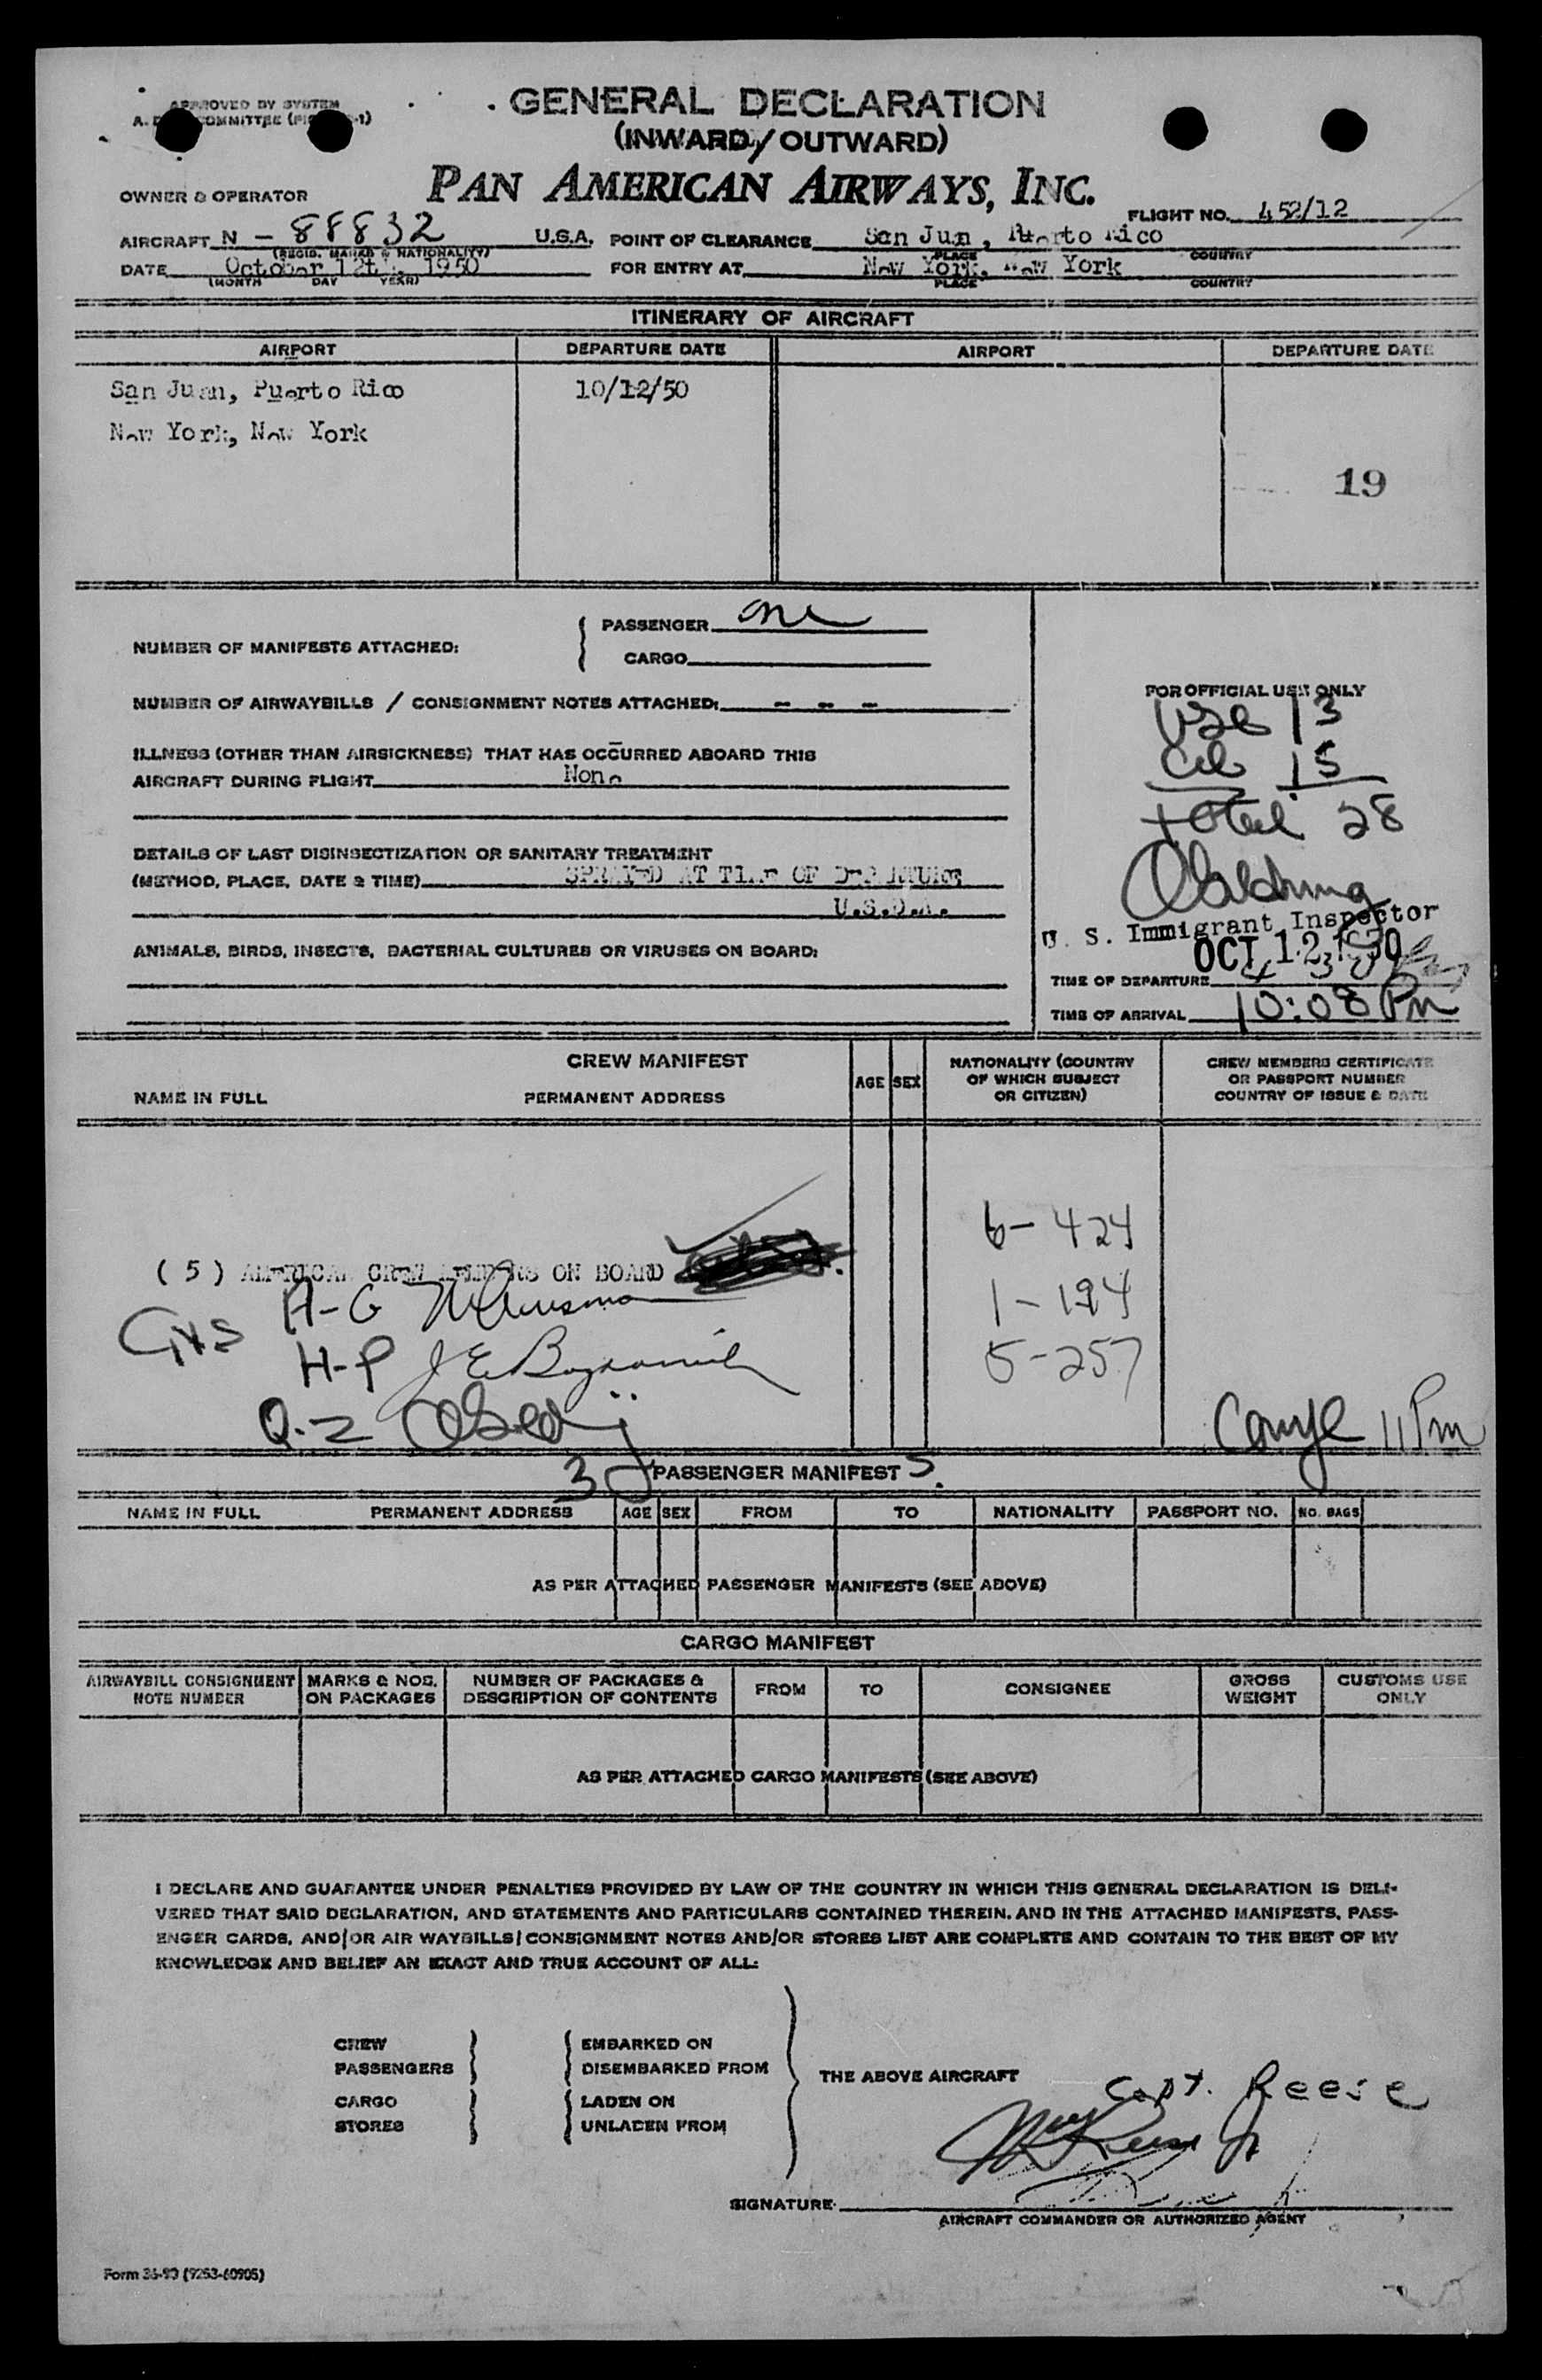 APPROVED BY SYSTEM
GENERAL DECLARATION
(INWARD/OUTWARD)
PAN AMERICAN AIRWAYS, INC.
OWNER & OPERATOR
FLIGHT NO. 452/12
AIRCRAFT N - 88832 U.S.A. POINT OF CLEARANCE San Juan, Puerto Rico
(REGIS. MARKS & NATIONALITY) PLACE COUNTRY
DATE October 12th, 1950 FOR ENTRY AT New York, New York
(MONTH DAY YEAR) PLACE COUNTRY
ITINERARY OF AIRCRAFT
AIRPORT DEPARTURE DATE AIRPORT DEPARTURE DATE
San Juan, Puerto Rico 10/12/50
New York, New York
19
NUMBER OF MANIFESTS ATTACHED: PASSENGER one
CARGO
NUMBER OF AIRWAYBILLS / CONSIGNMENT NOTES ATTACHED: - - -
ILLNESS (OTHER THAN AIRSICKNESS) THAT HAS OCCURRED ABOARD THIS
AIRCRAFT DURING FLIGHT None
DETAILS OF LAST DISINSECTIZATION OR SANITARY TREATMENT
(METHOD, PLACE, DATE & TIME) SPRAYED AT TIME OF DEPARTURE
ANIMALS, BIRDS, INSECTS, BACTERIAL CULTURES OR VIRUSES ON BOARD:
FOR OFFICIAL USE ONLY
13
15
total 28
U. S. Immigrant Inspector
OCT 12 1950
TIME OF DEPARTURE
TIME OF ARRIVAL 10:08 Pm
CREW MANIFEST
NAME IN FULL PERMANENT ADDRESS AGE SEX NATIONALITY (COUNTRY OF WHICH SUBJECT OR CITIZEN) CREW MEMBERS CERTIFICATE OR PASSPORT NUMBER COUNTRY OF ISSUE & DATE
6- 424
(5) AMERICAN CREW MEMBERS ON BOARD
1 - 194
H-G
H-P J E
5-257
Q.2
11 Pm
PASSENGER MANIFEST
NAME IN FULL PERMANENT ADDRESS AGE SEX FROM TO NATIONALITY PASSPORT NO. NO. BAGS
AS PER ATTACHED PASSENGER MANIFESTS (SEE ABOVE)
CARGO MANIFEST
AIRWAYBILL CONSIGNMENT NOTE NUMBER MARKS & NOS. ON PACKAGES NUMBER OF PACKAGES & DESCRIPTION OF CONTENTS FROM TO CONSIGNEE GROSS WEIGHT CUSTOMS USE ONLY
AS PER ATTACHED CARGO MANIFESTS (SEE ABOVE)
I DECLARE AND GUARANTEE UNDER PENALTIES PROVIDED BY LAW OF THE COUNTRY IN WHICH THIS GENERAL DECLARATION IS DELI-
VERED THAT SAID DECLARATION, AND STATEMENTS AND PARTICULARS CONTAINED THEREIN, AND IN THE ATTACHED MANIFESTS, PASS-
ENGER CARDS, AND/OR AIR WAYBILLS/CONSIGNMENT NOTES AND/OR STORES LIST ARE COMPLETE AND CONTAIN TO THE BEST OF MY
KNOWLEDGE AND BELIEF AN EXACT AND TRUE ACCOUNT OF ALL:
CREW EMBARKED ON
PASSENGERS DISEMBARKED FROM
THE ABOVE AIRCRAFT
CARGO LADEN ON
STORES UNLADEN FROM
Capt. Reese
SIGNATURE
AIRCRAFT COMMANDER OR AUTHORIZED AGENT
Form 36-90 (9253-60905)